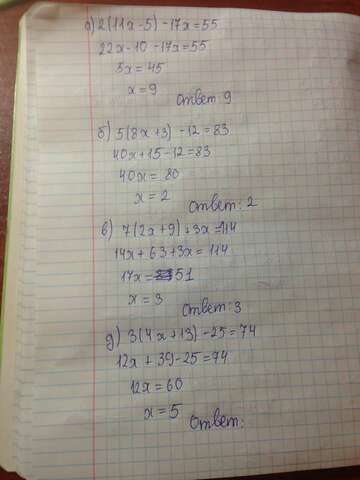 а) 2(11x-5)-17x=55
22x-10-17x=55
5x=45
x=9
Ответ 9
б) 5(8x+3)-12=83
40x+15-12=83
40x=80
x=2
Ответ: 2
в) 7(2x+9)+3x=114
14x+63+3x=114
17x=51
x=3
Ответ: 3
д) 3(4x+13)-25=74
12x+39-25=74
12x=60
x=5
Ответ: